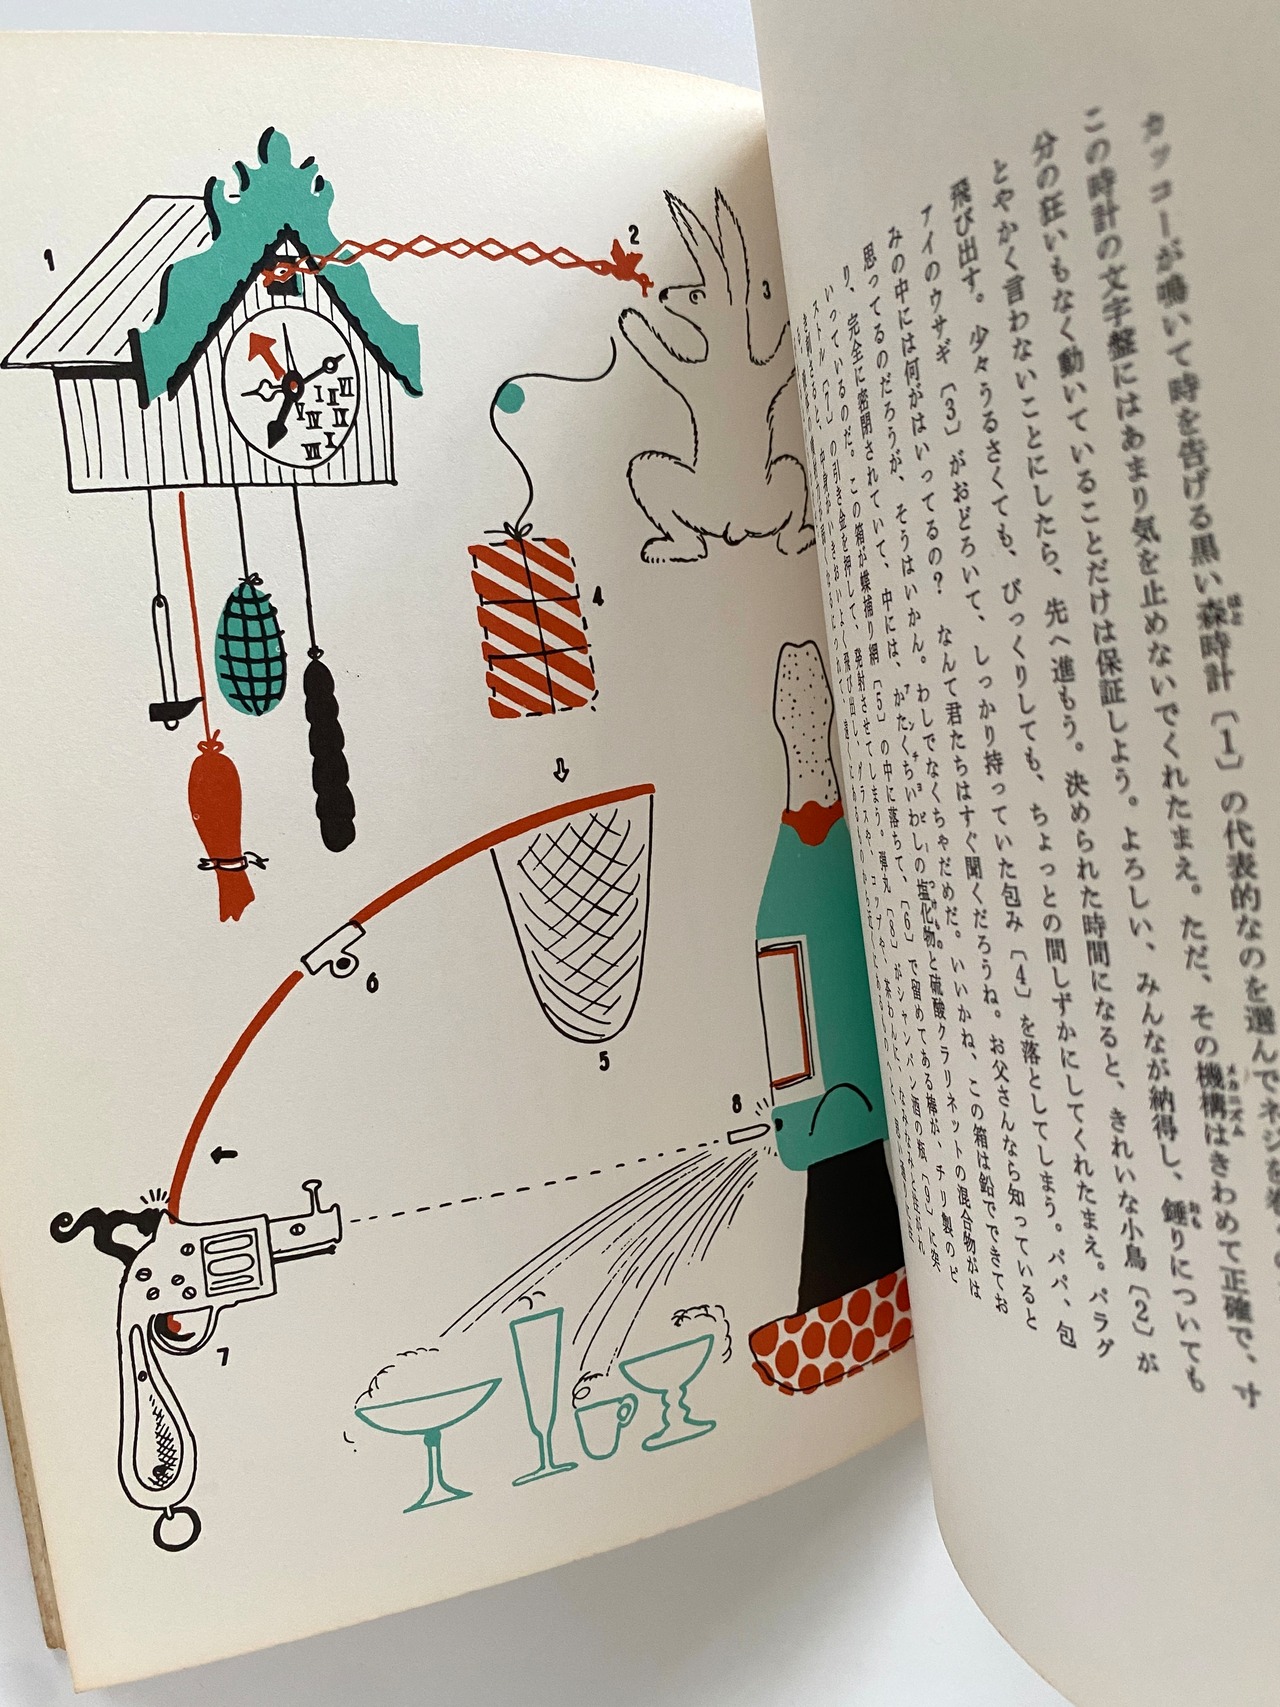 カッコーが鳴いて時を告げる黒い森時計〔1〕の代表的なのを選んでネジを
この時計の文字盤にはあまり気を止めないでくれたまえ。ただ、その機構はきわめて正確で、寸
分の狂いもなく動いていることだけは保証しよう。よろしい、みんなが納得し、錘りについても
とやかく言わないことにしたら、先へ進もう。決められた時間になると、きれいな小鳥〔2〕が
飛び出す。少々うるさくても、びっくりしても、ちょっとの間しずかにしてくれたまえ。パラグ
アイのウサギ〔3〕がおどろいて、しっかり持っていた包み〔4〕を落としてしまう。パパ、包
みの中には何がはいってるの？　なんて君たちはすぐ聞くだろうね。お父さんなら知っていると
思ってるのだろうが、そうはいかん。わしでなくちゃだめだ。いいかね、この箱は鉛でできてお
り、完全に密閉されていて、中には、かたくちいわしの塩化物と硫酸クラリネットの混合物がは
いっているのだ。この箱が蝶捕り網〔5〕の中に落ちて、〔6〕で留めてある棒が、チリ製のピ
ストル〔7〕の引き金を押して、発射させてしまう。弾丸〔8〕がシャンパン酒の瓶〔9〕に突
1
2
3
4
5
6
7
8
I
II
VI
V
IV
IX
VII
I